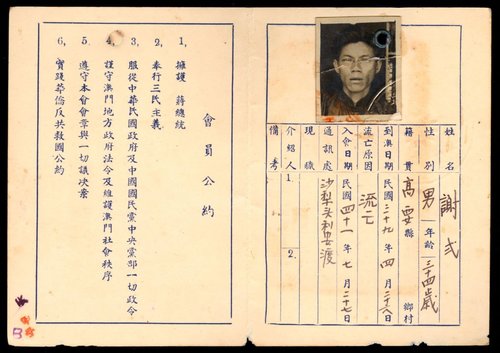 姓名 謝弍
性別 男 年齡 三十四歲
籍貫 高要縣 鄉村
到澳日期 民國二十九年四月二十八日
流亡原因 流亡
入會日期 民國四十一年七月二十七日
通訊處 沙梨头
現職
介紹人 1. 2.
備考
會員公約
1, 擁護 蔣總統
2, 奉行三民主義
3, 服從中華民國政府及中國國民黨中央黨部一切政令
4, 謹守澳門地方政府法令及維護澳門社會秩序
5, 遵守本會會章與一切議决案
6, 實踐華僑反共救國公約